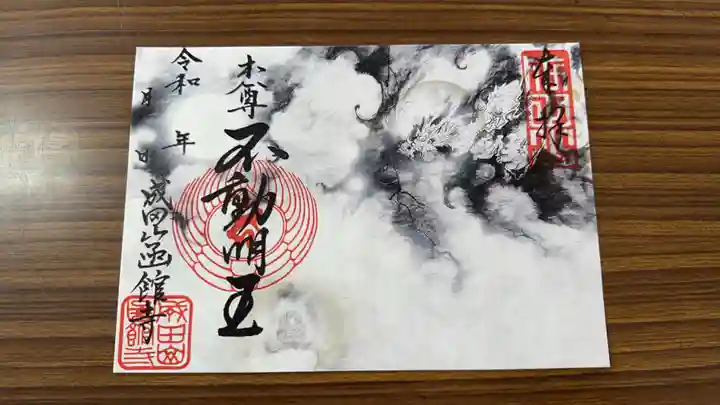 奉拝
本尊
不動明王
令和 年
月 日
成田山函館寺